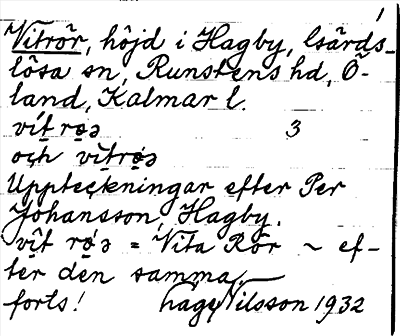 1
Vitrör, höjd i Hagby, Gärds-
lösa sn, Runstens hd, Ö-
land, Kalmar l.
vít ro̤ə 3
och vitro̤ə
Uppteckningar efter Per
Johansson, Hagby.
vit ro̤ə = Vita Rör ~ ef-
ter den samma.
forts! Låge Nilsson 1932